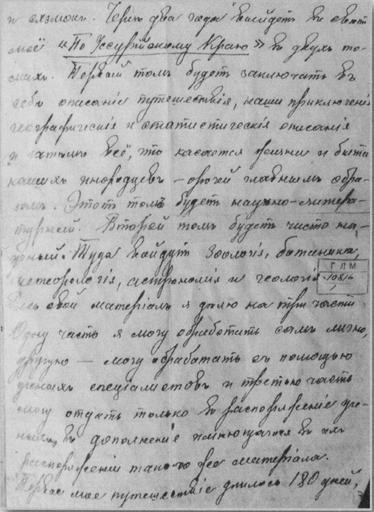 и
Черезъ два года выйдетъ въ свѣтъ
моё «По Уссурійскому Краю» въ двухъ то-
махъ. Первый томъ будетъ заключать въ
себѣ описаніе путешествія, наши приключенія
географическія и статистическія описанія
и затѣмъ всё, что касается жизни и быта
нашихъ инородцевъ — орочей главнымъ обра-
зомъ. Этотъ томъ будетъ научно-литера-
турный. Второй томъ будетъ чисто на-
учный. Туда войдутъ зоологія, ботаника,
метеорологія, астрономія и геологія.
Г Л М
Весь свой матеріалъ я дѣлю на три части.
Одну часть я могу обработать самъ лично,
другую — могу обработать съ помощью
ученыхъ спеціалистовъ и третью часть
могу отдать только въ распоряженіе уче-
нымъ, въ дополненіе имеющагося въ ихъ
распоряженіи такого же матеріала.
Первое мое путешествіе длилось 180 дней,